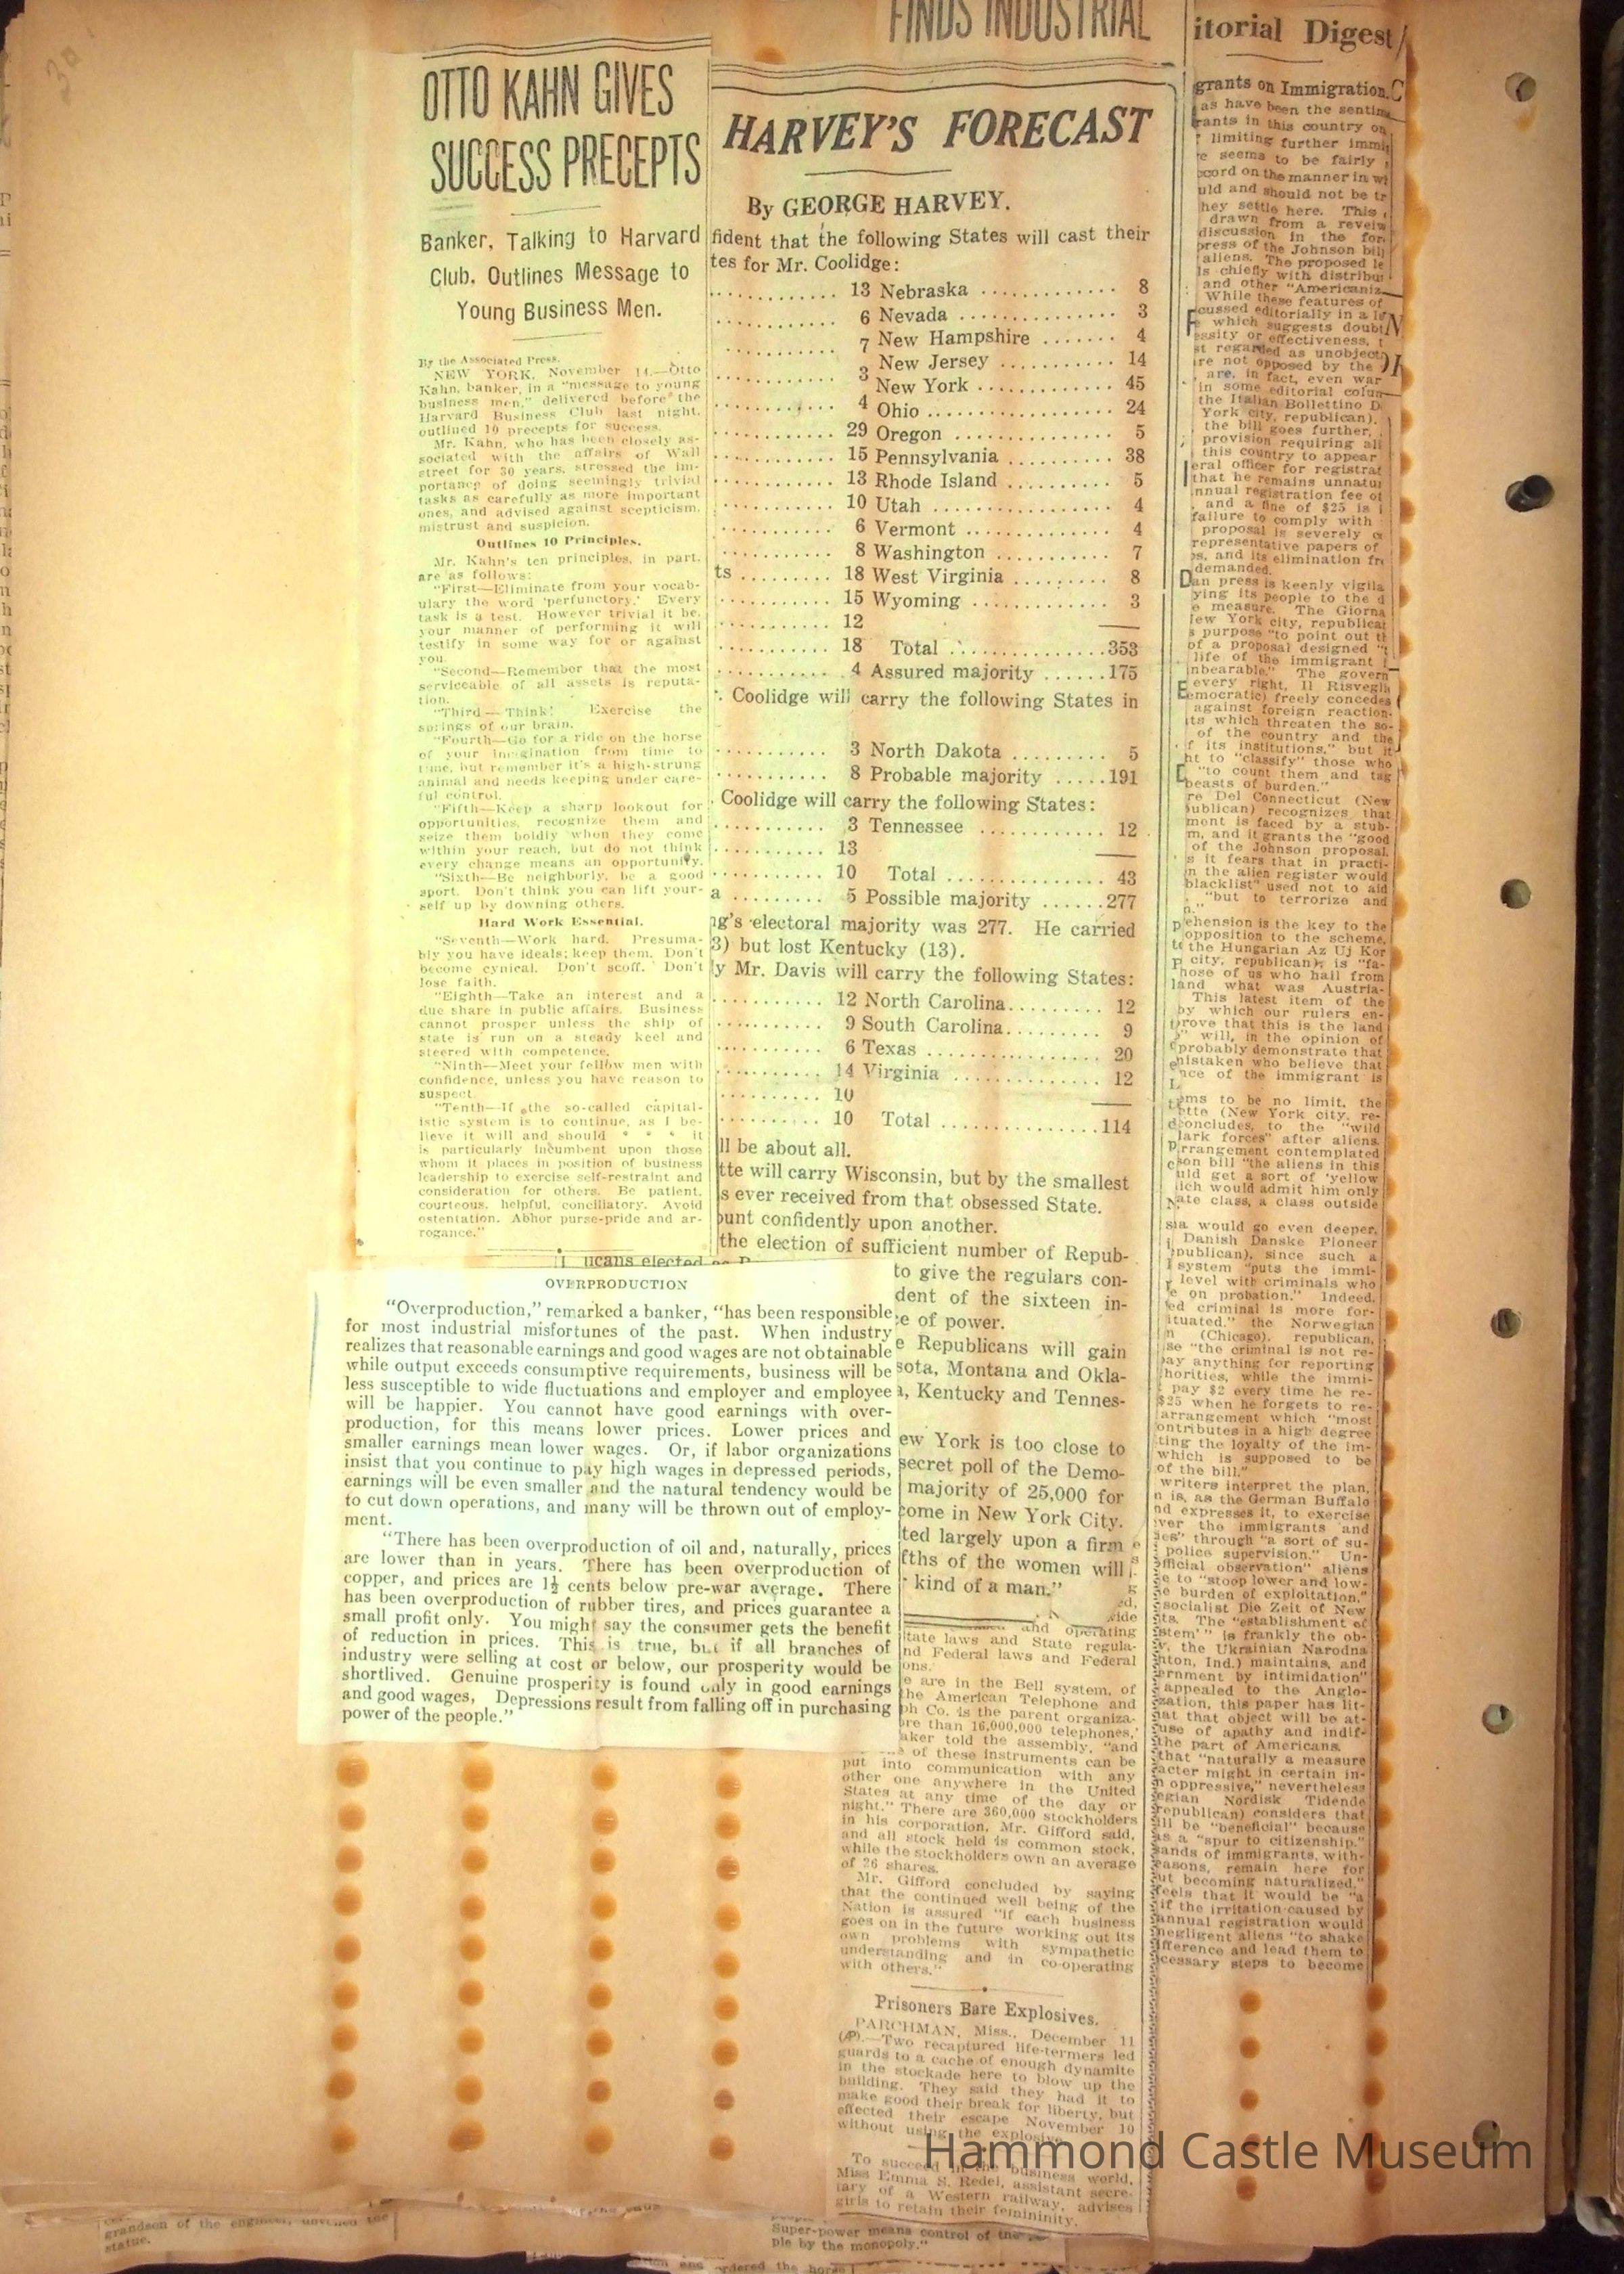 30
OTTO KAHN GIVES
SUCCESS PRECEPTS
Banker, Talking to Harvard
Club, Outlines Message to
Young Business Men.
By the Associated Press.
NEW YORK, November 14.—Otto
Kahn, banker, in a "message to young
business men," delivered before the
Harvard Business Club last night,
outlined 10 precepts for success.
Mr. Kahn, who has been closely as-
sociated with the affairs of Wall
street for 30 years, stressed the im-
portance of doing seemingly trivial
tasks as carefully as more important
ones, and advised against scepticism,
mistrust and suspicion.
Outlines 10 Principles.
Mr. Kahn's ten principles, in part,
are as follows:
"First—Eliminate from your vocab-
ulary the word 'perfunctory.' Every
task is a test. However trivial it be,
your manner of performing it will
testify in some way for or against
you.
"Second—Remember that the most
serviceable of all assets is reputa-
tion.
"Third—Think! Exercise the
springs of our brain.
"Fourth—Go for a ride on the horse
of your imagination from time to
time, but remember it's a high-strung
animal and needs keeping under care-
ful control.
"Fifth—Keep a sharp lookout for
opportunities, recognize them and
seize them boldly when they come
within your reach, but do not think
every change means an opportunity.
"Sixth—Be neighborly, be a good
sport. Don't think you can lift your-
self up by downing others.
Hard Work Essential.
"Seventh—Work hard. Presuma-
bly you have ideals; keep them. Don't
become cynical. Don't scoff. Don't
lose faith.
"Eighth—Take an interest and a
due share in public affairs. Business
cannot prosper unless the ship of
state is run on a steady keel and
steered with competence.
"Ninth—Meet your fellow men with
confidence, unless you have reason to
suspect.
"Tenth—If the so-called capital-
istic system is to continue, as I be-
lieve it will and should * * * it
is particularly incumbent upon those
whom it places in position of business
leadership to exercise self-restraint and
consideration for others. Be patient,
courteous, helpful, conciliatory. Avoid
ostentation. Abhor purse-pride and ar-
rogance."
OVERPRODUCTION
"Overproduction," remarked a banker, "has been responsible
for most industrial misfortunes of the past. When industry
realizes that reasonable earnings and good wages are not obtainable
while output exceeds consumptive requirements, business will be
less susceptible to wide fluctuations and employer and employee
will be happier. You cannot have good earnings with over-
production, for this means lower prices. Lower prices and
smaller earnings mean lower wages. Or, if labor organizations
insist that you continue to pay high wages in depressed periods,
earnings will be even smaller and the natural tendency would be
to cut down operations, and many will be thrown out of employ-
ment.
"There has been overproduction of oil and, naturally, prices
are lower than in years. There has been overproduction of
copper, and prices are 1½ cents below pre-war average. There
has been overproduction of rubber tires, and prices guarantee a
small profit only. You might say the consumer gets the benefit
of reduction in prices. This is true, but if all branches of
industry were selling at cost or below, our prosperity would be
shortlived. Genuine prosperity is found only in good earnings
and good wages. Depressions result from falling off in purchasing
power of the people."
FINDS INDUSTRIAL
HARVEY'S FORECAST
By GEORGE HARVEY.
fident that the following States will cast their
tes for Mr. Coolidge:
13 Nebraska 8
6 Nevada 3
7 New Hampshire 4
New Jersey 14
3 New York 45
4 Ohio 24
29 Oregon 5
15 Pennsylvania 38
13 Rhode Island 5
10 Utah 4
6 Vermont 4
8 Washington 7
ts 18 West Virginia 8
15 Wyoming 3
12
18 Total 353
4 Assured majority 175
Coolidge will carry the following States in
3 North Dakota 5
8 Probable majority 191
Coolidge will carry the following States:
3 Tennessee 12
13
10 Total 43
a 5 Possible majority 277
ng's electoral majority was 277. He carried
3) but lost Kentucky (13).
ly Mr. Davis will carry the following States:
12 North Carolina 12
9 South Carolina 9
6 Texas 20
14 Virginia 12
10
10 Total 114
ll be about all.
tte will carry Wisconsin, but by the smallest
s ever received from that obsessed State.
ount confidently upon another.
the election of sufficient number of Repub-
ucans elected
to give the regulars con-
dent of the sixteen in-
ce of power.
e Republicans will gain
sota, Montana and Okla-
a, Kentucky and Tennes-
ew York is too close to
secret poll of the Demo-
majority of 25,000 for
come in New York City.
ted largely upon a firm
fths of the women will
kind of a man."
and operating
tate laws and State regula-
nd Federal laws and Federal
ons.
e are in the Bell system, of
he American Telephone and
ph Co. is the parent organiza-
ore than 16,000,000 telephones,"
aker told the assembly, "and
of these instruments can be
put into communication with any
other one anywhere in the United
States at any time of the day or
night." There are 360,000 stockholders
in his corporation, Mr. Gifford said,
and all stock held is common stock,
while the stockholders own an average
of 26 shares.
Mr. Gifford concluded by saying
that the continued well being of the
Nation is assured "if each business
goes on in the future working out its
own problems with sympathetic
understanding and in co-operating
with others."
Prisoners Bare Explosives.
PARCHMAN, Miss., December 11
(AP).—Two recaptured life-termers led
guards to a cache of enough dynamite
in the stockade here to blow up the
building. They said they had it to
make good their break for liberty, but
effected their escape November 10
without using the explosive.
To succeed in the business world,
Miss Emma S. Redel, assistant secre-
tary of a Western railway, advises
girls to retain their femininity.
itorial Digest
grants on Immigration.
as have been the sentim
rants in this country on
limiting further immi
e seems to be fairly
cord on the manner in w
uld and should not be tr
hey settle here. This
drawn from a review
discussion in the for
press of the Johnson bill
aliens. The proposed le
is chiefly with distribu
and other "Americaniz
While these features of
cussed editorially in a l
which suggests doubt
essity or effectiveness, t
st regarded as unobject
re not opposed by the
are, in fact, even war
in some editorial colum
the Italian Bollettino D
York city, republican).
the bill goes further,
provision requiring all
this country to appear
eral officer for registrat
that he remains unnatur
nnual registration fee of
and a fine of $25 is i
failure to comply with
proposal is severely c
representative papers of
s, and its elimination fr
demanded.
an press is keenly vigila
ying its people to the d
e measure. The Giorna
ew York city, republicat
s purpose "to point out th
of a proposal designed "t
life of the immigrant
nbearable." The govern
every right, Il Risvegli
emocratic) freely concedes
against foreign reaction-
its which threaten the so-
of the country and the
f its institutions," but it
ht to "classify" those who
"to count them and tag
beasts of burden."
re Del Connecticut (New
publican) recognizes that
ment is faced by a stub-
m, and it grants the "good
of the Johnson proposal.
s it fears that in practi-
n the alien register would
blacklist" used not to aid
"but to terrorize and
n."
ehension is the key to the
opposition to the scheme,
the Hungarian Az Uj Kor
city, republican), is "fa-
hose of us who hail from
land what was Austria-
This latest item of the
by which our rulers en-
prove that this is the land
" will, in the opinion of
probably demonstrate that
mistaken who believe that
nce of the immigrant is
ems to be no limit, the
ette (New York city, re-
concludes, to the "wild
lark forces" after aliens.
rrangement contemplated
son bill "the aliens in this
uld get a sort of 'yellow
ich would admit him only
ate class, a class outside
sia would go even deeper,
Danish Danske Pioneer
publican), since such a
system "puts the immi-
level with criminals who
e on probation." Indeed,
ed criminal is more for-
ituated," the Norwegian
n (Chicago), republican,
se "the criminal is not re-
pay anything for reporting
horities, while the immi-
pay $2 every time he re-
$25 when he forgets to re-
arrangement which "most
ontributes in a high degree
ting the loyalty of the im-
which is supposed to be
of the bill."
writers interpret the plan,
n is, as the German Buffalo
nd expresses it, to exercise
ver the immigrants and
des" through "a sort of su-
police supervision." Un-
official observation" aliens
e to "stoop lower and low-
e burden of exploitation,"
socialist Die Zeit of New
ts. The "establishment of
stem'" is frankly the ob-
y, the Ukrainian Narodna
nton, Ind.) maintains, and
ernment by intimidation"
appealed to the Anglo-
zation, this paper has lit-
at that object will be at-
use of apathy and indif-
the part of Americans.
that "naturally a measure
acter might in certain in-
n oppressive," nevertheless
egian Nordisk Tidende
republican) considers that
ill be "beneficial" because
as a "spur to citizenship."
sands of immigrants, with-
easons, remain here for
ut becoming naturalized."
feels that it would be "a
if the irritation caused by
annual registration would
negligent aliens "to shake
ifference and lead them to
cessary steps to become
Hammond Castle Museum
grandson of the engineer, unveiled the
statue.
Super-power means control of the
ple by the monopoly."
ordered the horse